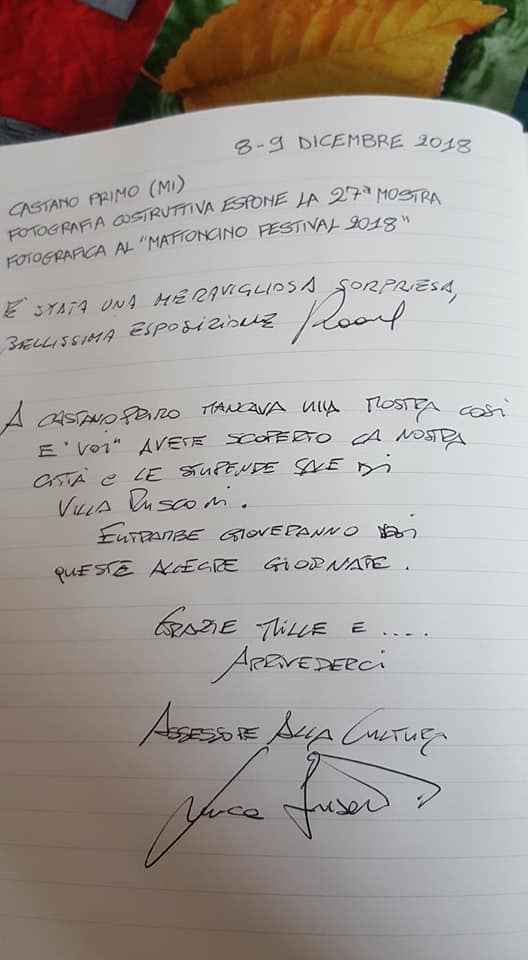 8-9 DICEMBRE 2018
CASTANO PRIMO (MI)
FOTOGRAFIA COSTRUTTIVA ESPONE LA 27ª MOSTRA
FOTOGRAFICA AL "MATTONCINO FESTIVAL 2018"
È STATA UNA MERAVIGLIOSA SORPRESA,
BELLISSIMA ESPOSIZIONE
A CASTANO PRIMO MANCAVA UNA MOSTRA COSÌ
E "VOI" AVETE SCOPERTO LA NOSTRA
CITTÀ e LE STUPENDE SALE DI
VILLA RUSCONI.
ENTRAMBE GIOVERANNO DI
QUESTE ALLEGRE GIORNATE.
GRAZIE MILLE E ....
ARRIVEDERCI
ASSESSORE ALLA CULTURA
Luca